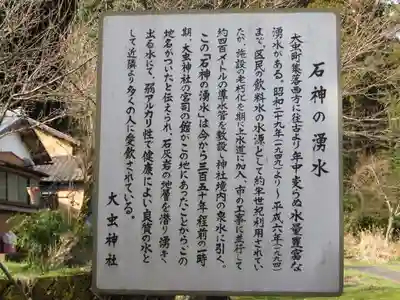 石神の湧水
大虫町集落西方に往古より年中変らぬ水量豊富な
湧水がある。昭和二十九年（一九五四）より～平成六年（一九九四）
まで、区民の飲料水の水源として約半世紀利用されてい
たが、施設の老朽化を期に上水道に加入、市の工事に並行して
約四百メートルの導水管を敷設し神社境内の泉水に引く。
この「石神の湧水」は今から三百五十年程前の一時
期、大虫神社の宮司の館がこの地にあったことから、この
地名がついたと伝えられ、石灰岩の地層を潜り湧き
出る水にて、弱アルカリ性で健康によい良質の水と
して近隣より多くの人に愛飲されている。
大虫神社